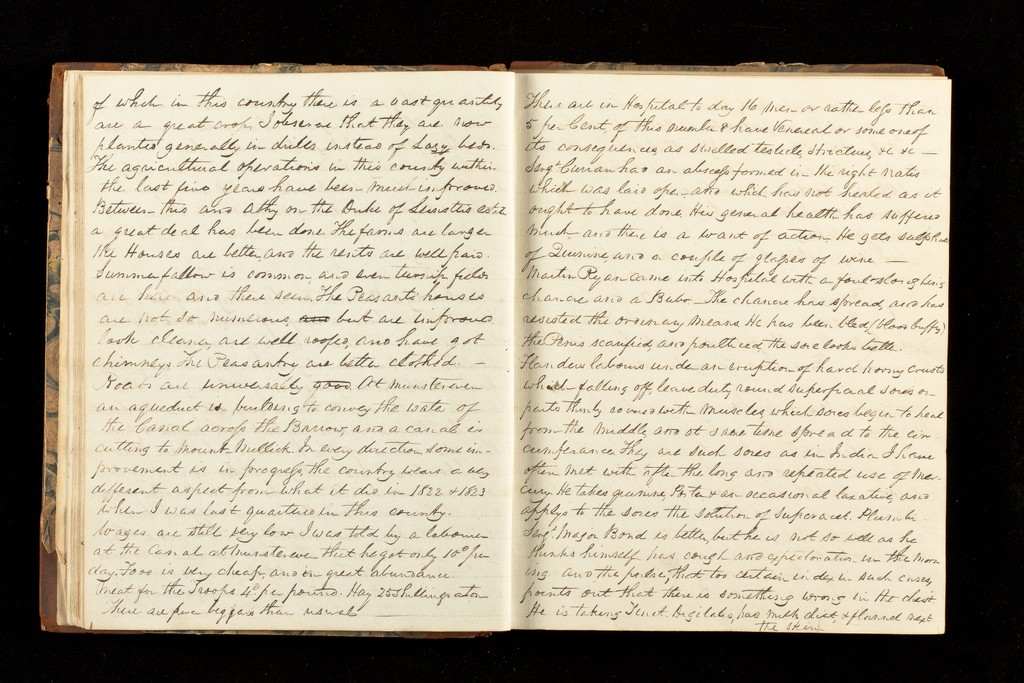 of which in this country there is a vast quantity
are a great crop. I observe that they are now
planted generally in drills instead of Lazy beds.
The agricultural operations in this county within
the last five years have been much improved.
Between this and Athy on the Duke of Leinsters estate
a great deal has been done. The farms are larger
the Houses are better, and the rents are well paid.
Summer fallow is common, and even turnip fields
are here and there seen. The Peasants houses
are not so numerous, but are improved
look cleaner, are well roofed, and have got
chimneys. The Peasantry are better clothed. —
Roads are universally good. At Munstereven
an aqueduct is building to convey the water of
the Canal across the Barrow, and a canal is
cutting to Mount Mellick. In every direction some im-
provement is in progress, the country wears a very
different aspect from what it did in 1822 & 1823
when I was last quartered in this county.
Wages are still very low. I was told by a labourer
at the Canal at Munstereven that he got only 10d per
day. Food is very cheap, and in great abundance.
Meat for the Troops 4d per pound. Hay 25 Shillings a ton
There are few beggars than usual
There are in Hospital to day 16 men or rather less than
5 per Cent. of this number 8 have Venereal or some one of
its consequences, as swelled testicle, Stricture, &c &c —
Sergt Curran has an abscess formed in the right Nates
which was laid open, and which has not healed as it
ought to have done. His general health has suffered
much, and there is a want of action. He gets sulphate
of Quinine, and a couple of glasses of wine —
Martin Ryan came into Hospital with a foul sloughing
chancre and a Bubo. The chancre has spread, and has
resisted the ordinary means. He has been bled, (blood buffy)
the Penis scarified, and poulticed, the sore looks better.
Flanders labours under an eruption of hard horny crusts
which falling off, leave dirty round superficial sores on
parts thinly covered with muscles, which sores begin to heal
from the middle, and at same time spread to the cir-
cumferance. They are such sores as in India I have
often met with after the long and repeated use of Mer-
cury. He takes quinine, Porter & an occasional laxative, and
applys to the sores the solution of Superacet. Plumbi
Sergt Major Bond is better, but he is not so well as he
thinks himself, has cough and expectoration in the morn
ing and the pulse, that too certain index in such cases,
points out that there is something wrong in the chest.
He is taking Tinct. Digitales, has milk diet, & flannel next
the skin